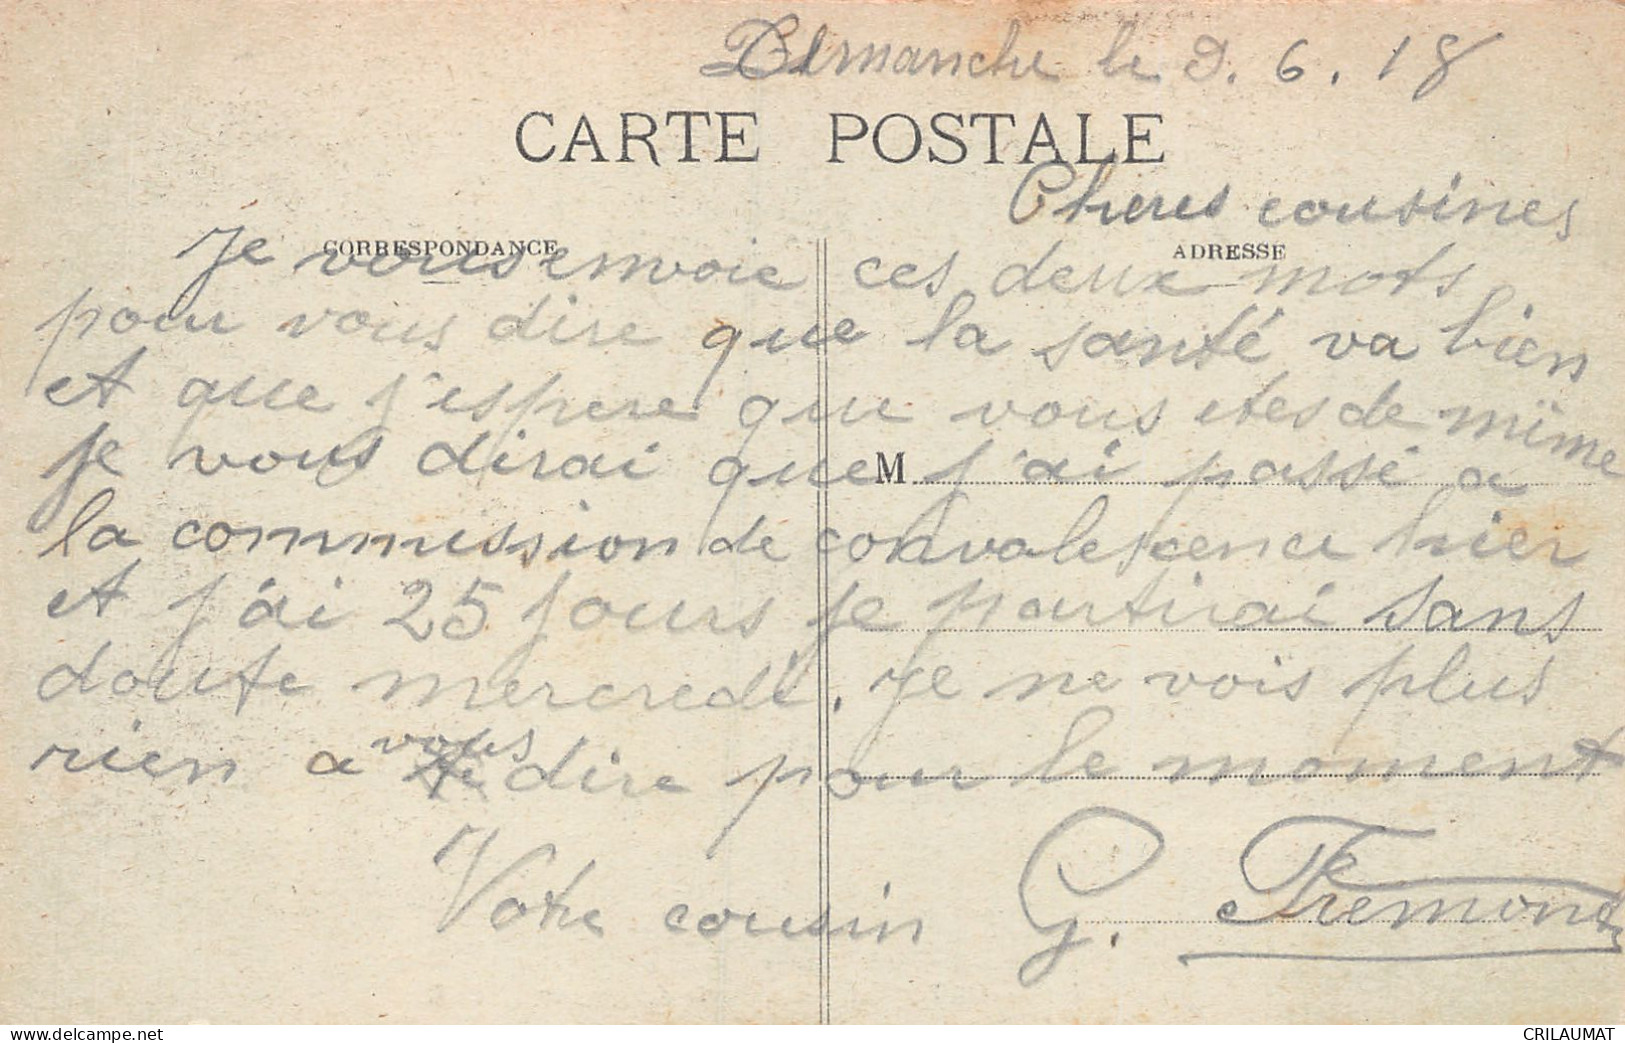 Dimanche le 9.6.18
CARTE POSTALE
Cheres cousines
CORRESPONDANCE
ADRESSE
Je vous envoie ces deux mots
pour vous dire que la santé va bien
et que j'espere que vous etes de mime
je vous dirai que j'ai passé a
M
la commission de convalescence hier
et j'ai 25 jours je partirai sans
doute mercredi. Je ne vois plus
rien a vous dire pour le moment
Votre cousin G.
www.delcampe.net
CRILAUMAT